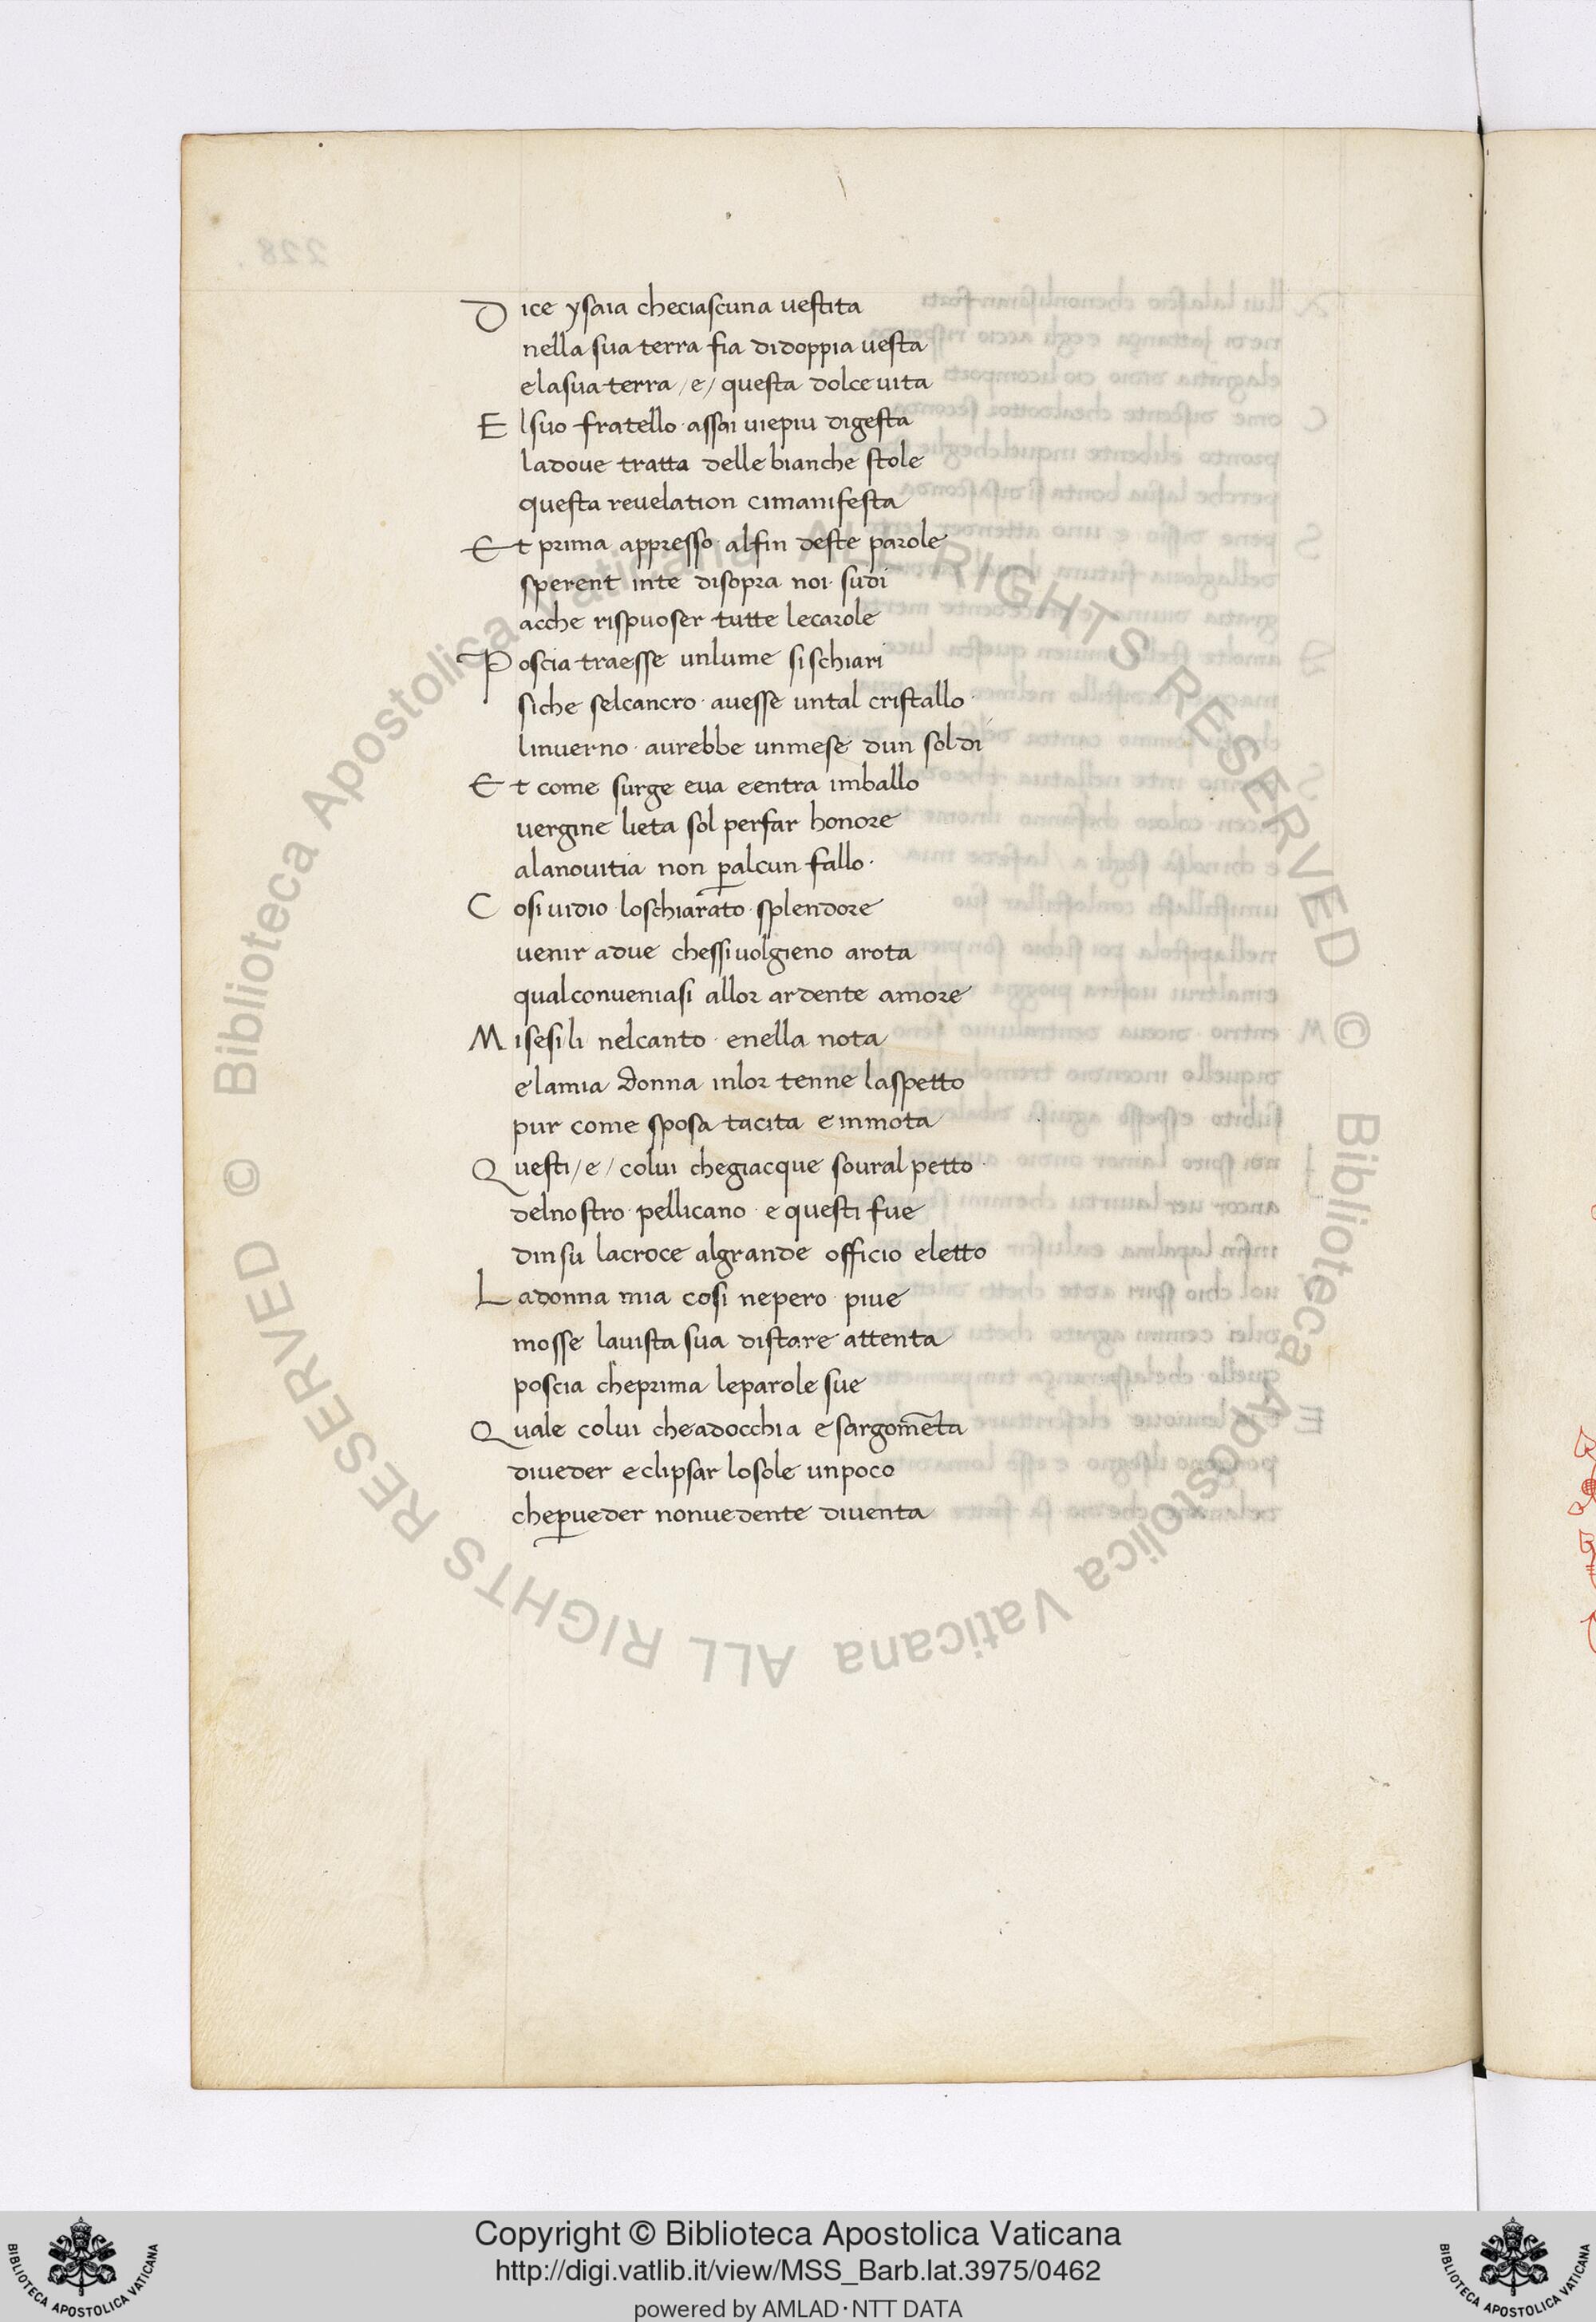 Dice ysaia checiascuna vestita
nella sua terra fia didoppia vesta
elasua terra /e/ questa dolce vita
Elsuo fratello · assai viepiu digesta
ladove tratta delle bianche stole
questa revelation cimanifesta
Et prima appresso · alfin deste parole
sperent inte disopra noi · sudi
acche rispuoser tutte lecarole
Poscia traesse unlume sischiari
siche selcancro · avesse untal cristallo ·
linverno · aurebbe unmese dun soldi
Et come surge eva eentra imballo
vergine lieta sol perfar honore
alanovitia non ꝑalcun fallo ·
Cosi vidio · loschiarato · splendore
venir adue chessivolgieno arota
qualconveniasi allor ardente amore
Misesili nelcanto · enella nota
elamia donna inlor tenne laspetto
pur come sposa tacita e inmota
Questi /e/ colui chegiacque sovral petto ·
delnostro · pellicano · e questi fue
dinsu lacroce algrande officio eletto
Ladonna mia cosi nepero · piue
mosse lavista sua distare attenta
poscia cheprima leparole sue
Quale colui cheadocchia e sargom̄eta
diveder eclipsar losole unpoco
cheꝑveder nonvedente diventa
228.
© Biblioteca Apostolica Vaticana ALL RIGHTS RESERVED © Biblioteca Apostolica Vaticana ALL RIGHTS RESERVED
Copyright © Biblioteca Apostolica Vaticana
http://digi.vatlib.it/view/MSS_Barb.lat.3975/0462
powered by AMLAD·NTT DATA
BIBLIOTECA APOSTOLICA VATICANA
BIBLIOTECA APOSTOLICA VATICANA